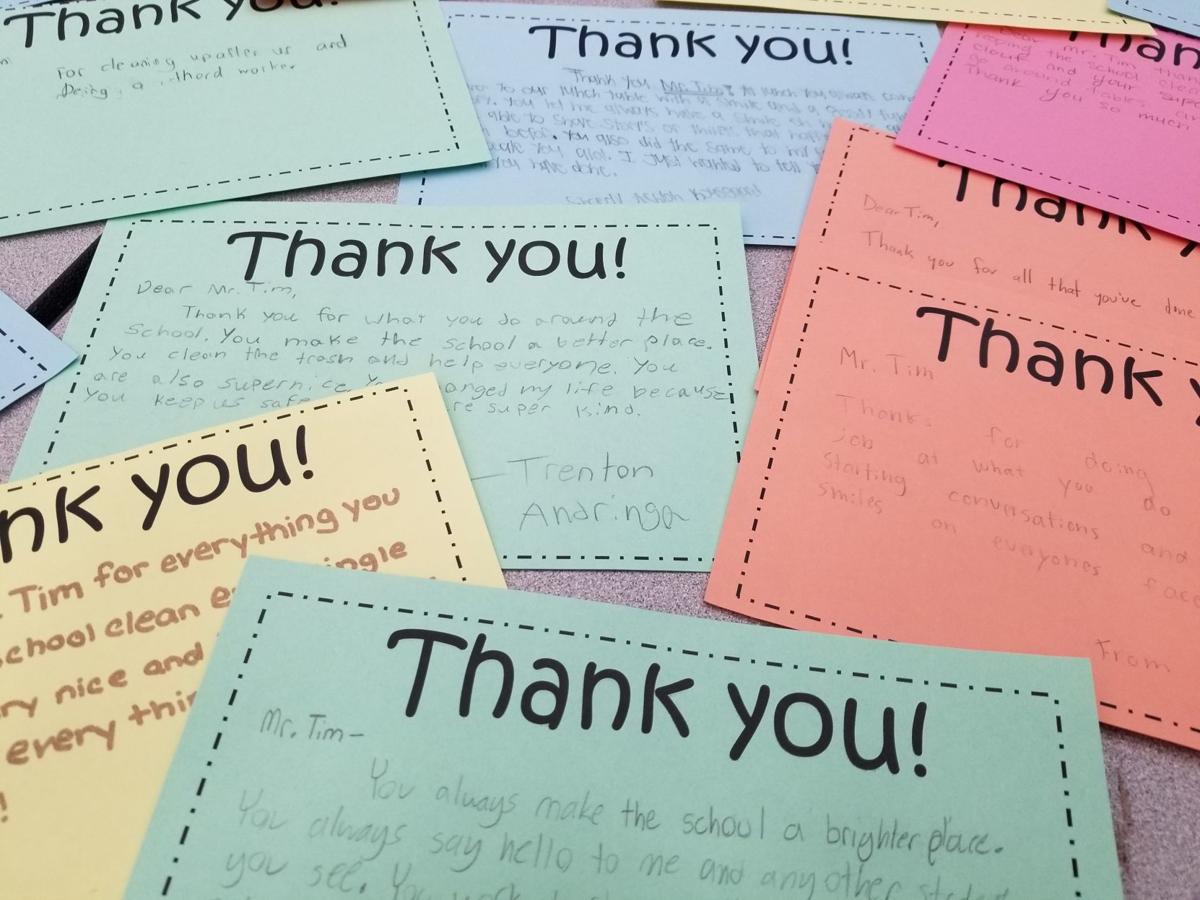 Thank you!
For cleaning up after us and
Being a hard worker
Thank you!
Thank you Mr. Tim! At lunch you always come
to our lunch table with a smile and a
You let me always have a smile on
able to share storys or things that
befor. You also did the same to my
you alot. I Just wanted to tell
you have done.
Than
Dear Mr. Tim than
the school clean
and your supe
go around tables an
Thank you so much
Thank y
Dear Tim,
Thank you for all that you've done
Thank you!
Dear Mr. Tim,
Thank you for what you do around the
School. You make the school a better place.
You clean the trash and help everyone. You
are also supernice Yo anged my life because
you keep us safe re super kind.
—Trenton
Andringa
Thank y
Mr. Tim
Thanks for doing
job at what you do
Starting conversations and
smiles on everyones face
From
nk you!
. Tim for everything you
chool clean e ingle
ry nice and
every thin
!
Thank you!
Mr. Tim—
You always make the school a brighter place.
You always say hello to me and any other studen
you see. You work